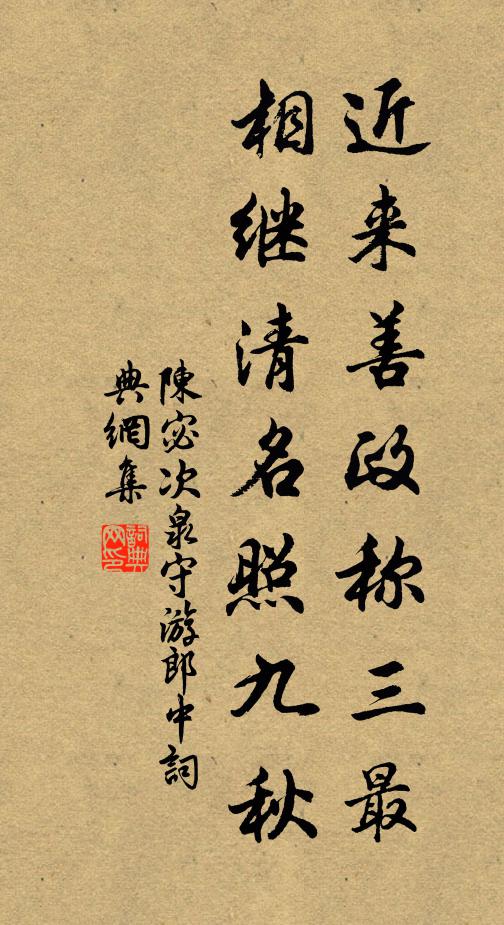 近来善政称三最
相继清名照九秋
陳宓次泉守游郎中詞
典網集
詞典
网印